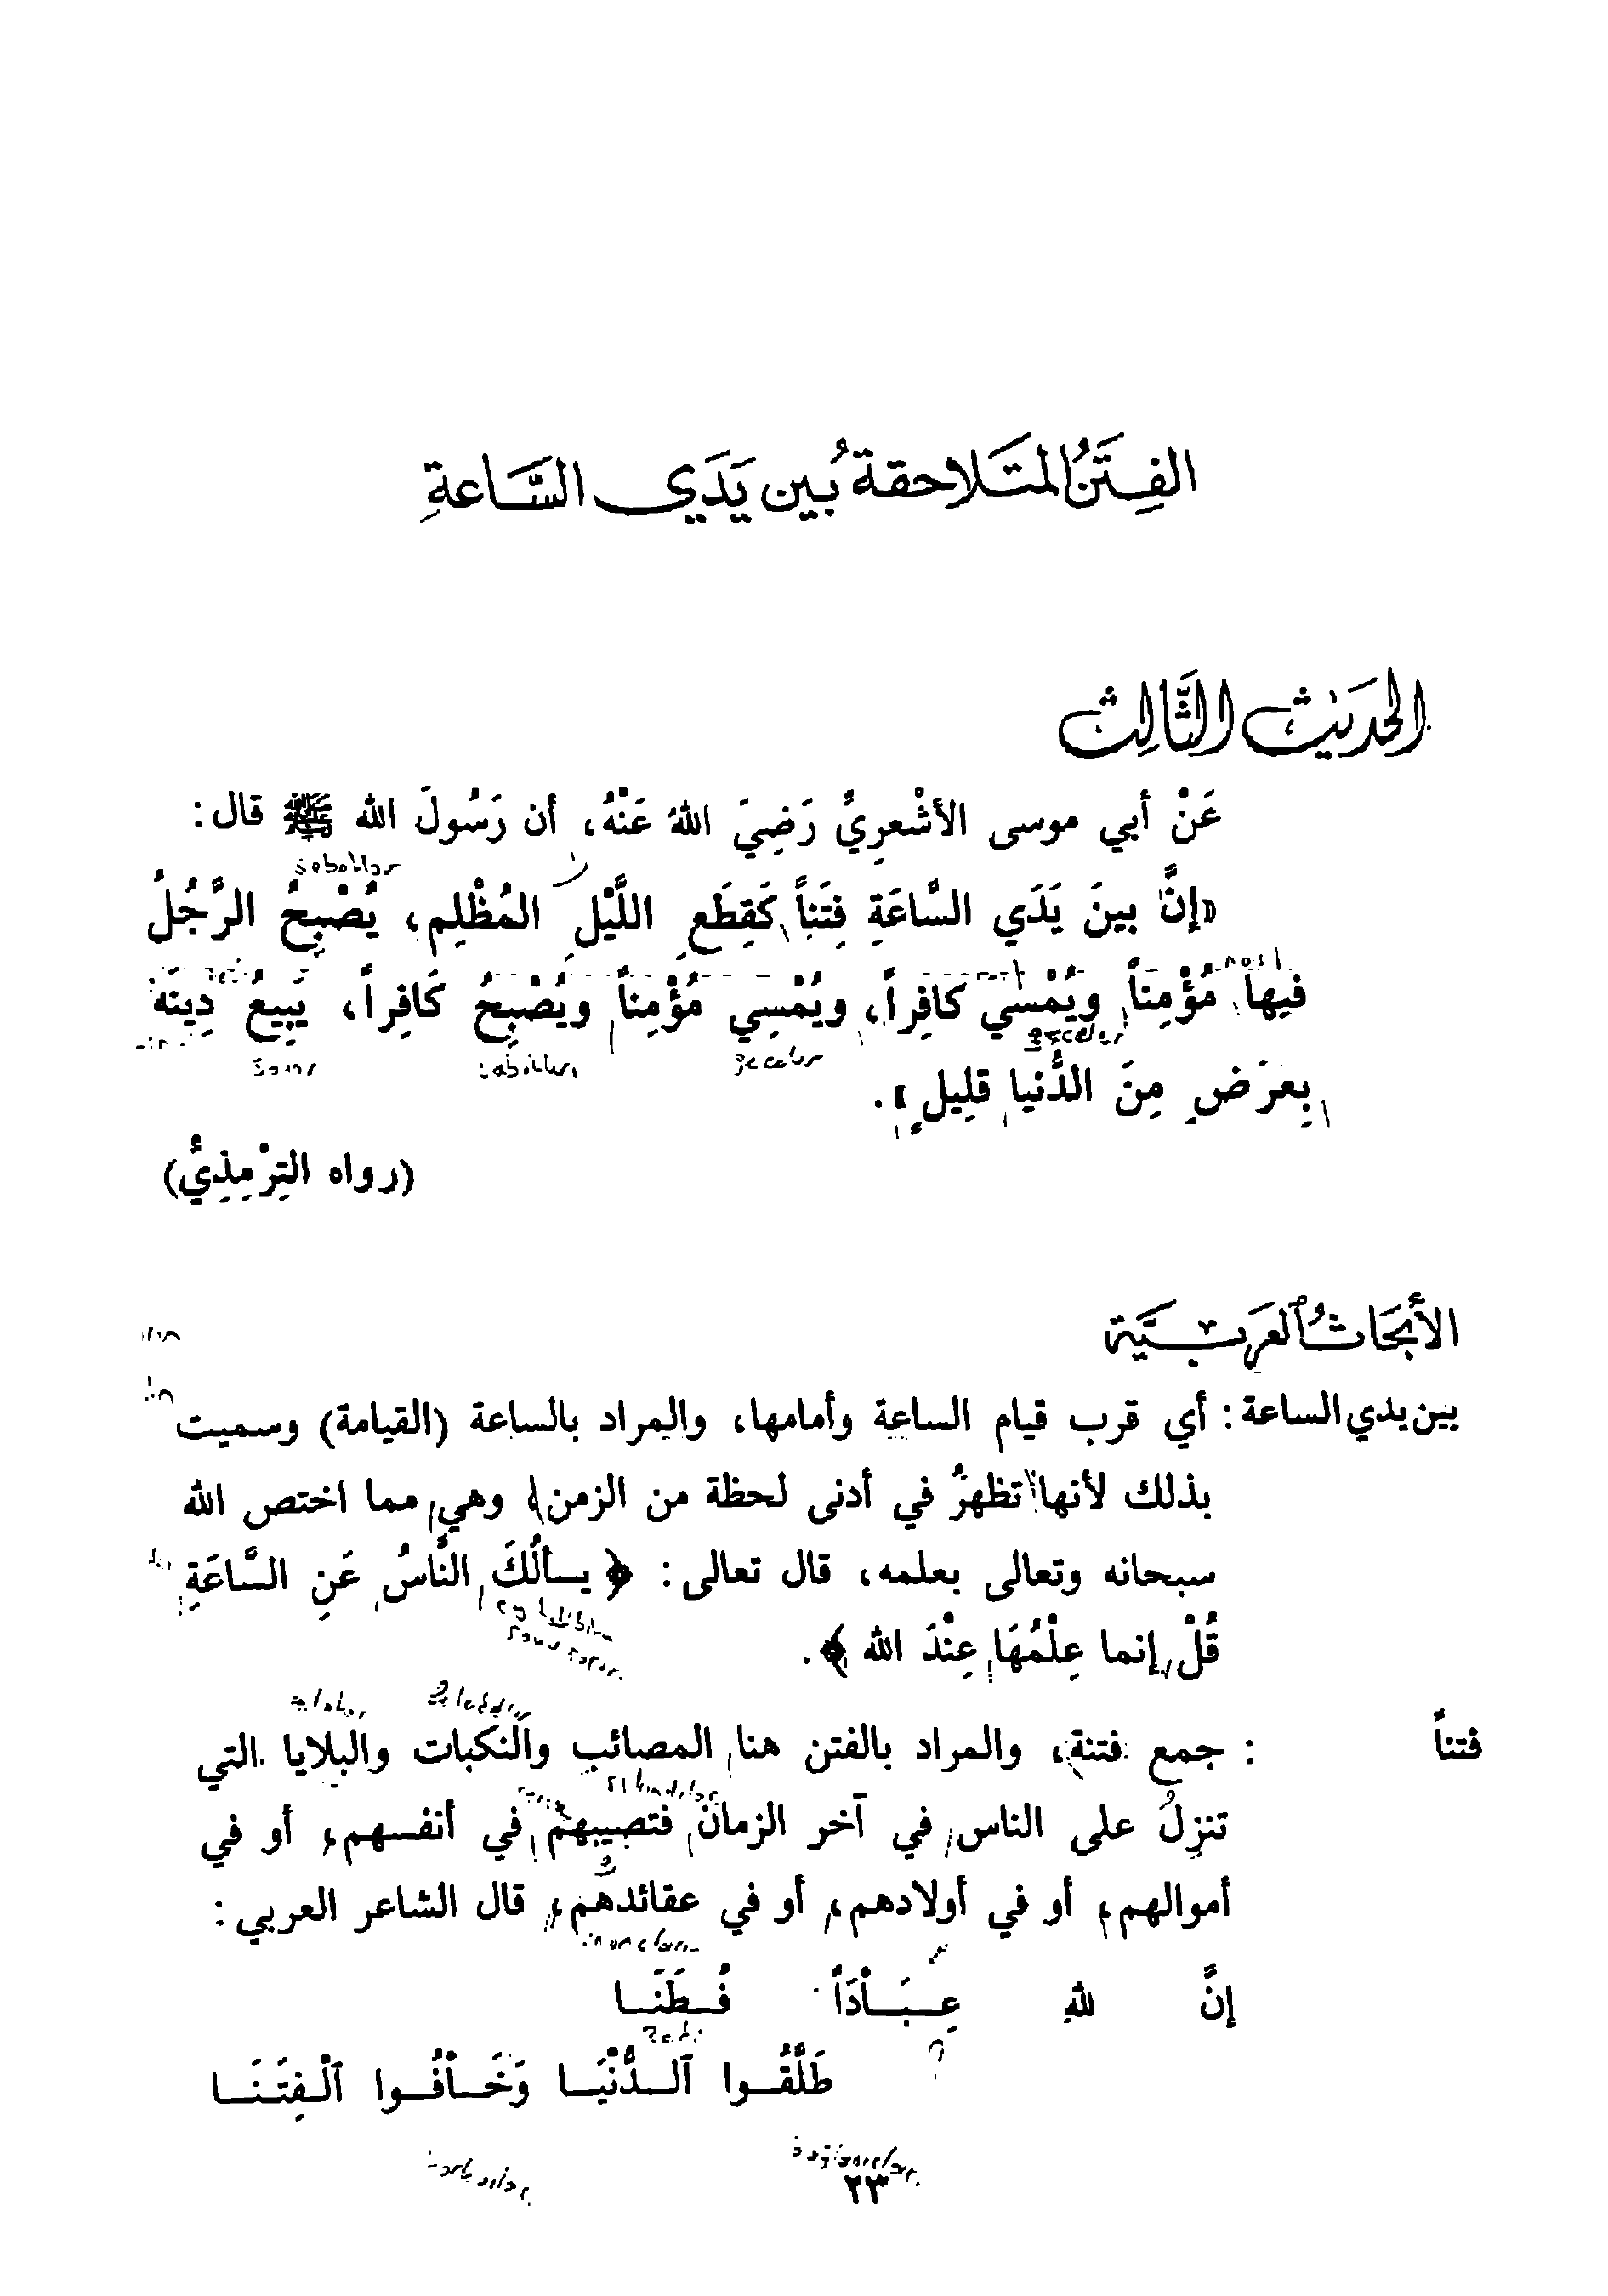 الفِتَنُ المتَلاحقة بين يَدَي السَّاعةِ
الحديث الثَّالِث
عَنْ أبي موسى الأشْعرِيِّ رَضِيَ اللهُ عَنْهُ، أن رَسُولَ الله ﷺ قال:
sabahlar
«إنَّ بينَ يَدَي السَّاعَةِ فِتَناً كَقِطَعِ اللَّيْلِ المُظْلِم، يُصْبِحُ الرَّجُلُ
فيها مُؤْمِناً ويُمْسي كافِراً، ويُمْسِي مُؤْمِناً ويُصْبِحُ كَافِراً، يَبِيعُ دِينَهُ
geceler
satar sabahları geceler
بِعرَضٍ مِنَ الدُّنيا قلِيلٍ».
(رواه التِرْمِذِيُّ)
الأبحَاثُ العَربيَّة
بين يدي الساعة: أي قرب قيام الساعة وأمامها، والمراد بالساعة (القيامة) وسميت
بذلك لأنها تظهرُ في أدنى لحظة من الزمن، وهي مما اختص الله
سبحانه وتعالى بعلمه، قال تعالى: ﴿يسألُكَ النَّاسُ عَنِ السَّاعَةِ
قُلْ إنما عِلْمُهَا عِنْدَ الله﴾.
فتناً : جمع فتنة، والمراد بالفتن هنا المصائب والنكبات والبلايا التي
تنزلُ على الناس في آخر الزمان فتصيبهم في أنفسهم، أو في
أموالهم، أو في أولادهم، أو في عقائدهم، قال الشاعر العربي:
إنَّ للهِ عِبَاْدَاً فُطَنَا
طَلَّقُوا ٱلدُّنْيَا وَخَاْفُوا ٱلْفِتَنَا
٢٣